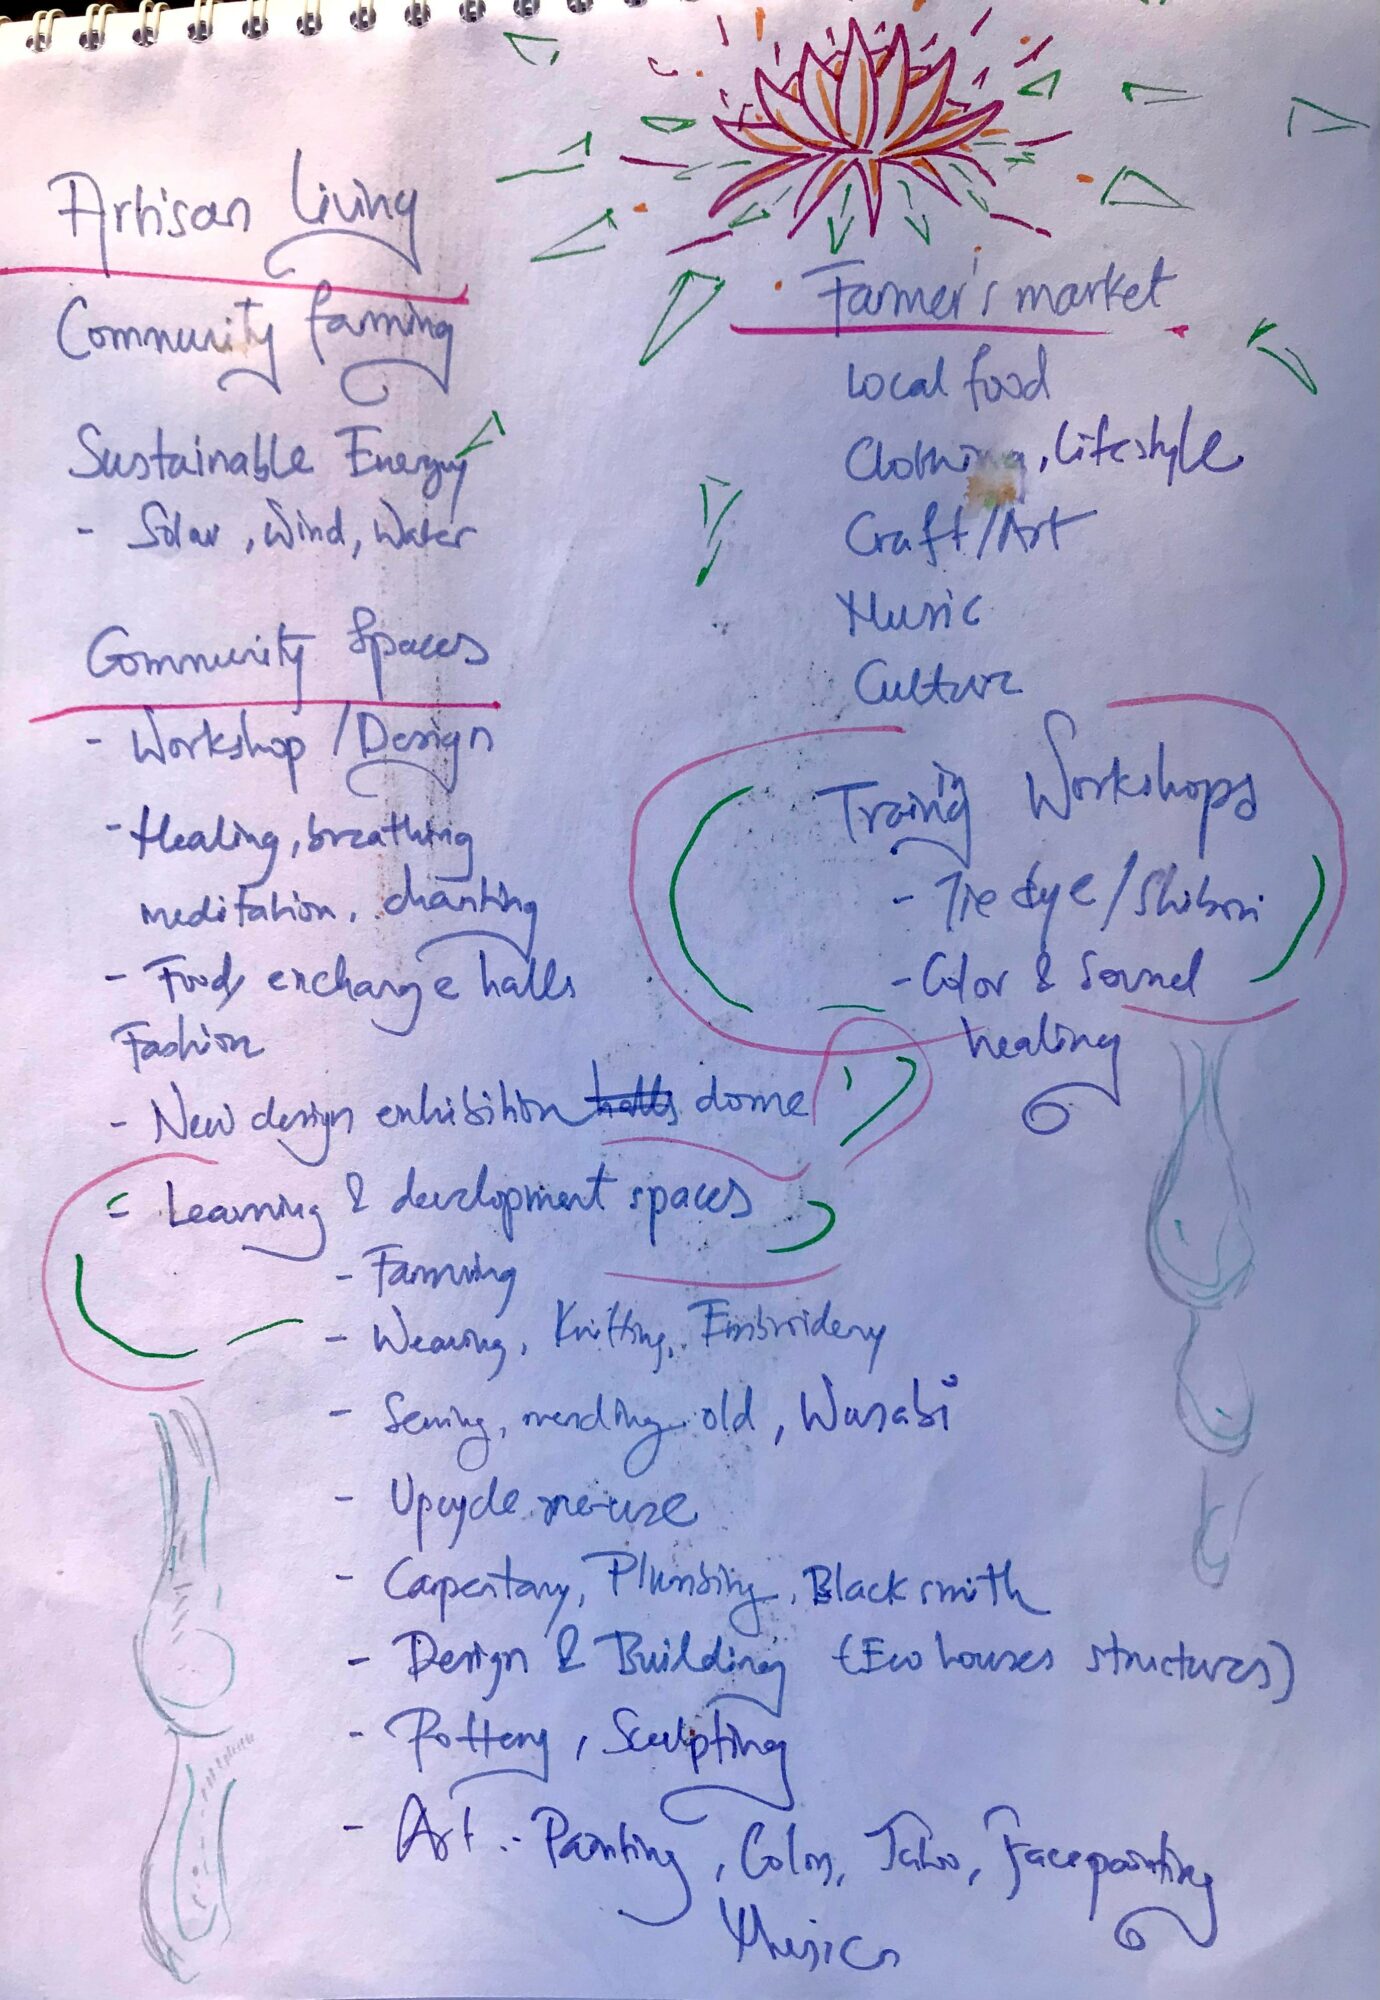 Artisan Living
Community farming
Sustainable Energy
- Solar, Wind, Water
Community Spaces
- Workshop / Design
- Healing, breathing
meditation, chanting
- Food, exchange halls
Fashion
- New design exhibition halls dome
= Learning & development spaces
- Farming
- Weaving, Knitting, Embroidery
- Sewing, mending old, Wasabi
- Upcycle re-use
- Carpentary, Plumbing, Blacksmith
- Design & Building (Eco houses structures)
- Pottery, Sculpting
- Art - Painting, Color, Tatoo, Facepainting
Music
Farmer's market
Local food
Clothing, lifestyle
Craft/Art
Music
Culture
Training Workshops
- Tie dye / Shibori
- Color & Sound
healing